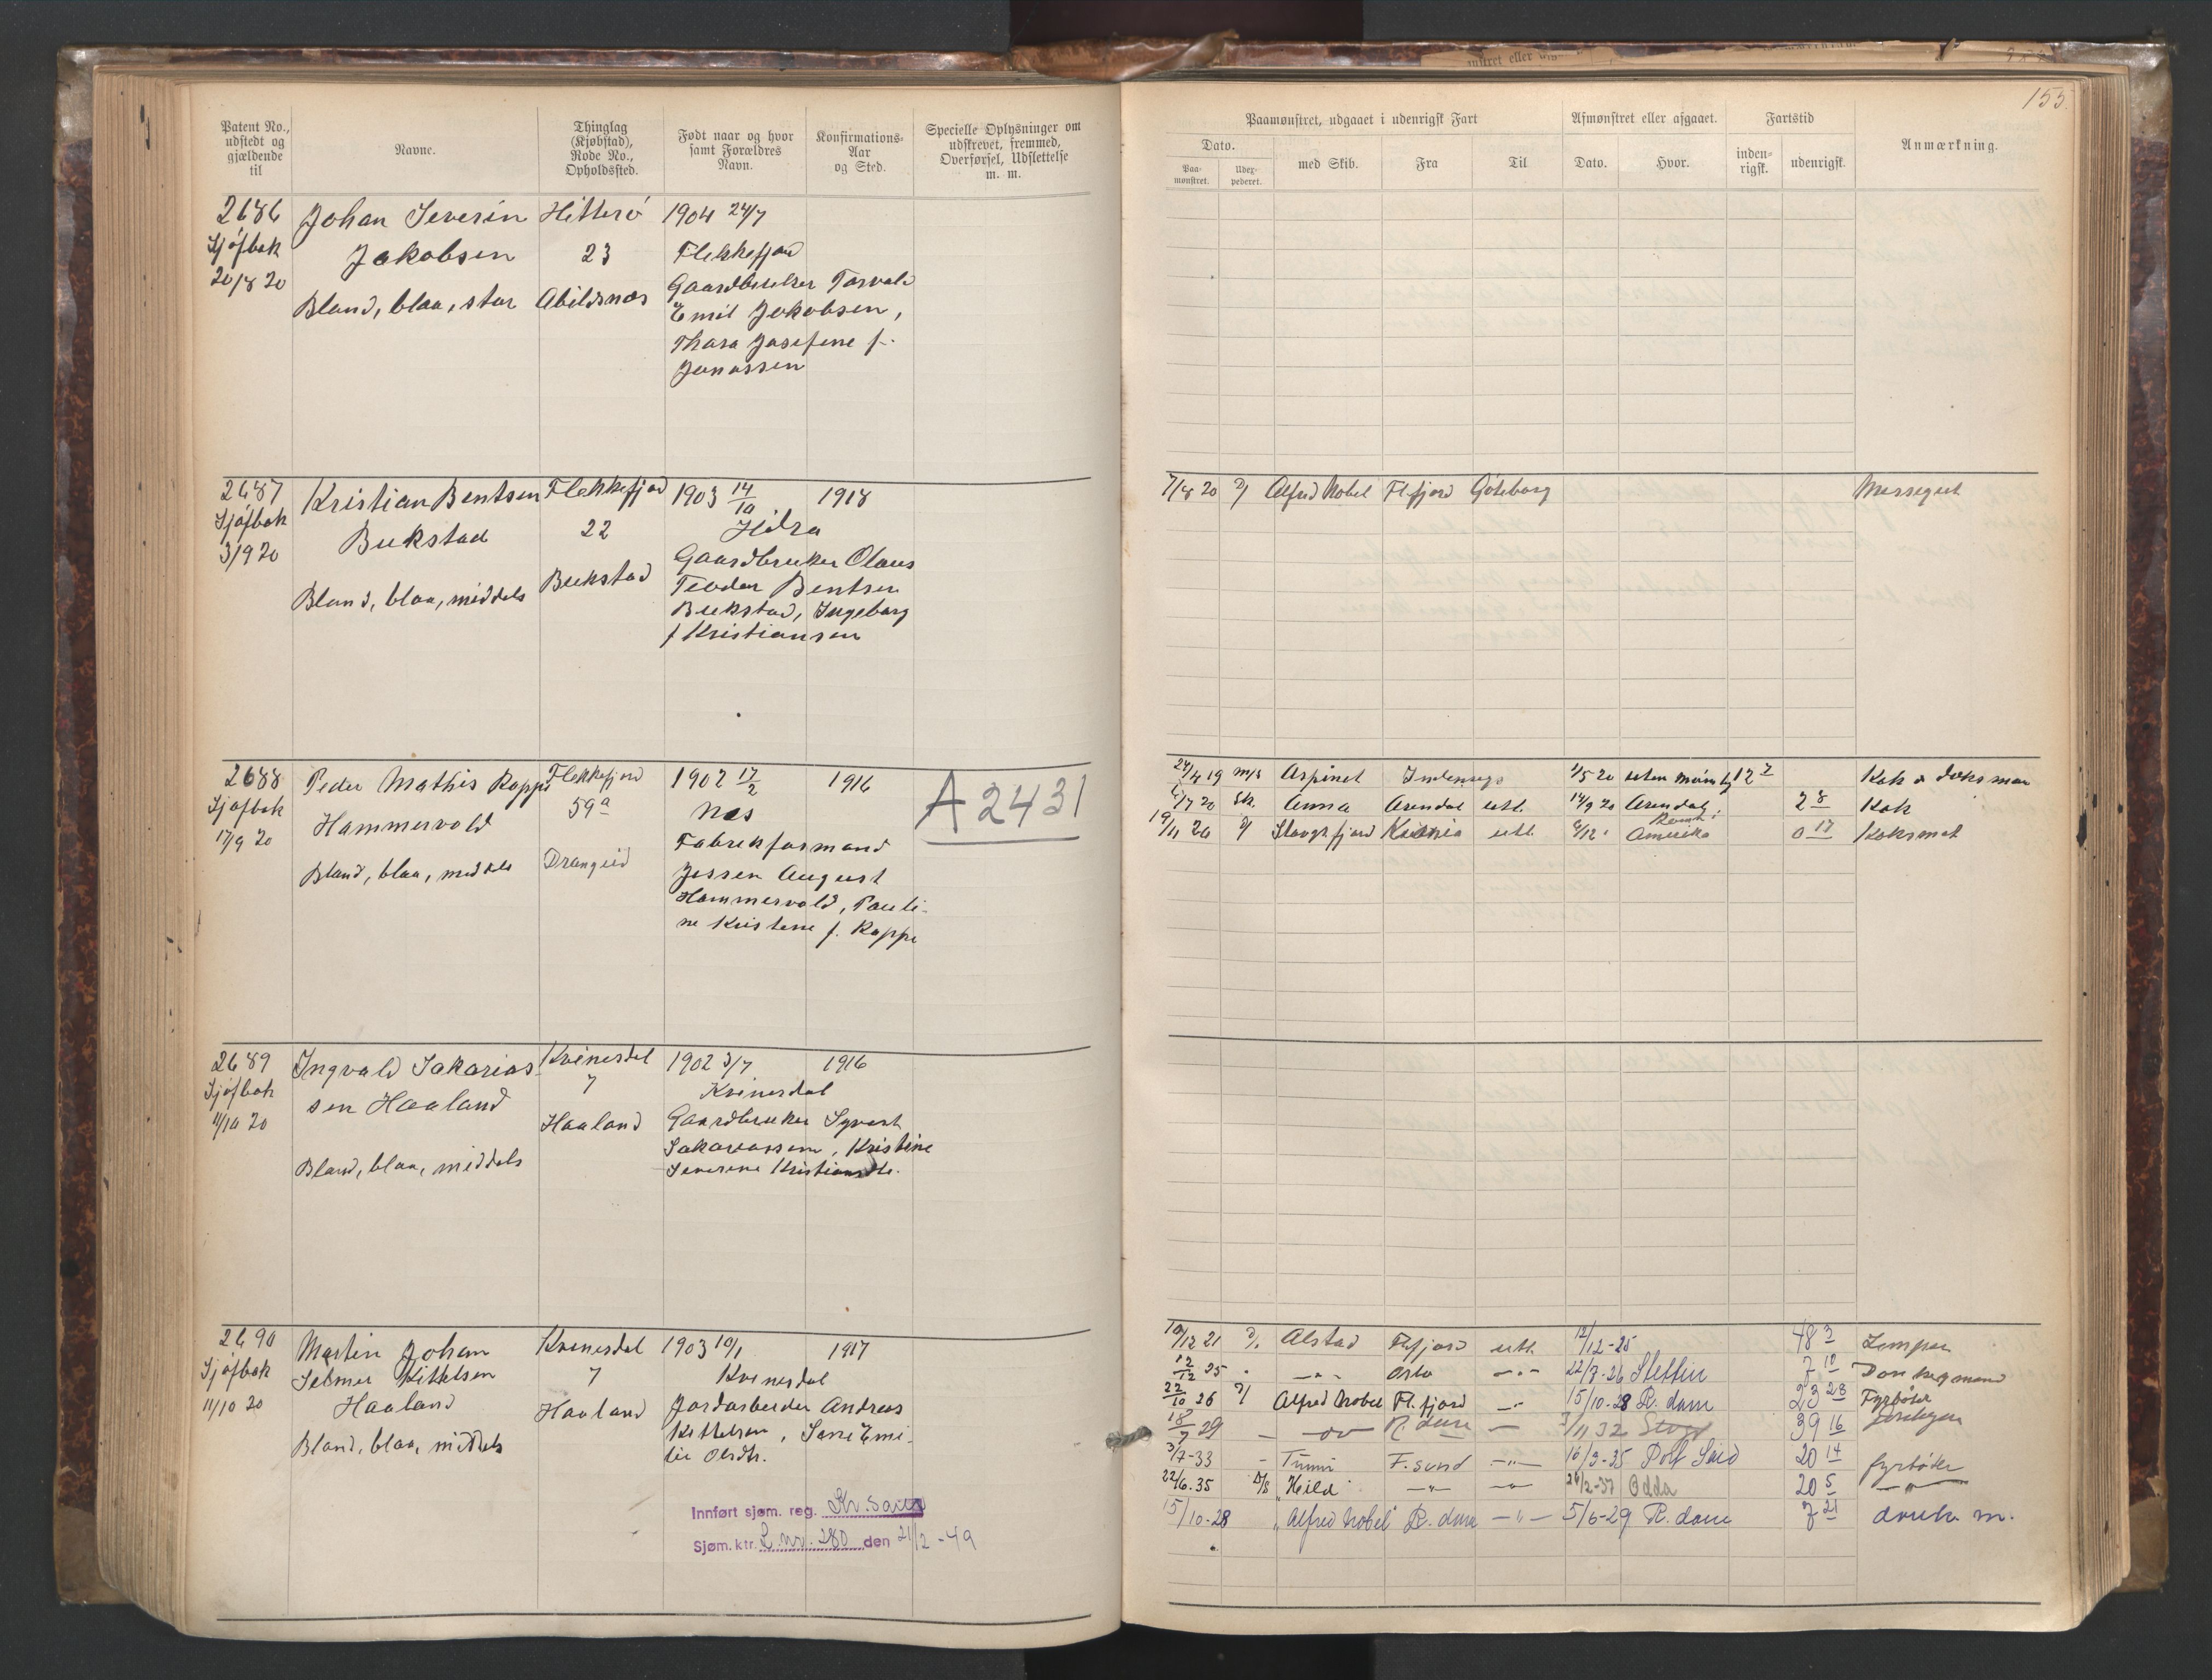 155.
Patent No., udstedt og gjældende til
Navne.
Thinglag (Kjøbstad), Rode No., Opholdssted.
Født naar og hvor samt Forældres Navn.
Konfirmations-Aar og Sted.
Specielle Oplysninger om udskrevet, fremmed, Overførsel, Udslettelse m. m.
Paamønstret, udgaaet i udenrigsk Fart
Afmønstret eller afgaaet.
Fartstid
Anmærkning.
Dato.
Paa-mønstret.
Udex-pederet.
med Skib.
Fra
Til
Dato.
Hvor.
inden-rigsk.
udenrigsk.
2686 Johan Severin Hitterø 1904 24/7
Sjøfbok Jakobsen 23 Flekkefjord
20/8 20 Gaardbruker Torvald
Blond, blaa, stor Abildsnes Emil Jakobsen,
Thora Josefine f.
Jonassen
2687 Kristian Bentsen Flekkefjord 1903 14/10 1918
Sjøfbok Bukstad 22 Hidra
3/9 20 Gaardbruker Olaus
Blond, blaa, middels Bukstad Teodor Bentsen
Bukstad, Ingeborg
f Kristiansen
7/8 20 D/ Alfred Nobel Fl.fjord Göteborg
2688 Peder Mathis Rappe Flekkefjord 1902 17/2 1916
Sjøfbok Hammervold 59a Nes A2431
17/9 20 Fabrikformand
Blond, blaa, middels Drangeid Jessen August
Hammervold, Pauli-
ne Kristine f. Rappe
24/4 19 m/s Aspinet 1/5 20 uten 12 7 Kok & Doksman
20 Sk. Anna Arendal utl. 14/9 20 Arendal 2 8 Kok
19/11 20 D/ Kr.ania utl. 6/12 Amerika 0 17 Koksmat
2689 Ingvald Sakarias- Kvinesdal 1902 3/7 1916
Sjøfbok sen Haaland 7 Kvinesdal
11/10 20 Haaland Gaardbruker Syvert
Sakariassen, Kristine
Blond, blaa, middels Severine Kristiansdt.
2690 Martin Johan Kvinesdal 1903 10/1 1917
Sjøfbok Selmer Kittelsen 7 Kvinesdal
11/10 20 Haaland Haaland Jordarbeider Andreas
Blond, blaa, middels Kittelsen, Sara Emi-
lie Olsdt.
Innført sjøm. reg. Kr.sand
Sjøm.ktr. L.nr. 280 den 21/2 -49
10/12 21 D/. Alstad Flfjord utl. 12/12-25 48 3 Lemper
12/12 25 " — " — Oslo — " — 22/7-26 Stettin 7 10 Donkeymand
22/10 26 D/ Alfred Nobel Fl.fjord — " 15/10-28 R.dam 23 23 Fyrbøter
18/7 29 — R.dam — 3/11 32 39 16
3/7-33 — F.sund — " — 16/3-35 Port Said 20 14 fyrbøter
22/6.35 D/S "Heild" — " — — " — 24/2-37 Odda 20 5 — " —
15/10-28 "Alfred Nobel" R.dam — " — 5/6-29 R.dam 7 21 donk. m.